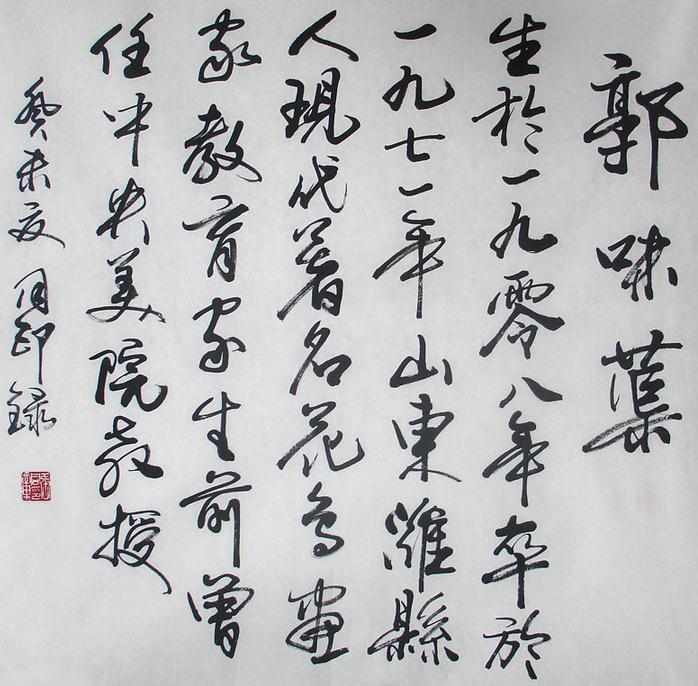 郭味蕖
生於一九零八年卒於
一九七一年山東濰縣
人現代著名花鳥畫
家教育家生前曾
任中央美院教授
癸未夏月 錄